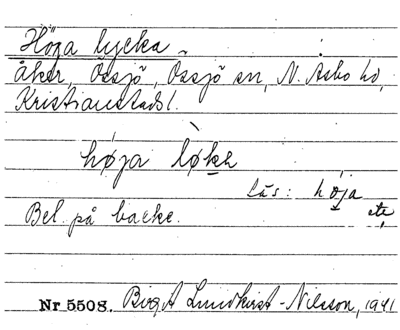 Höga lycka
åker, Össjö, Össjö sn, N. Åsbo hd,
Kristianstads l.
høja lø̀kɐ
läs: høja
etc
Bel. på backe.
Nr 5508. Birgit Lundkvist-Nilsson, 1941